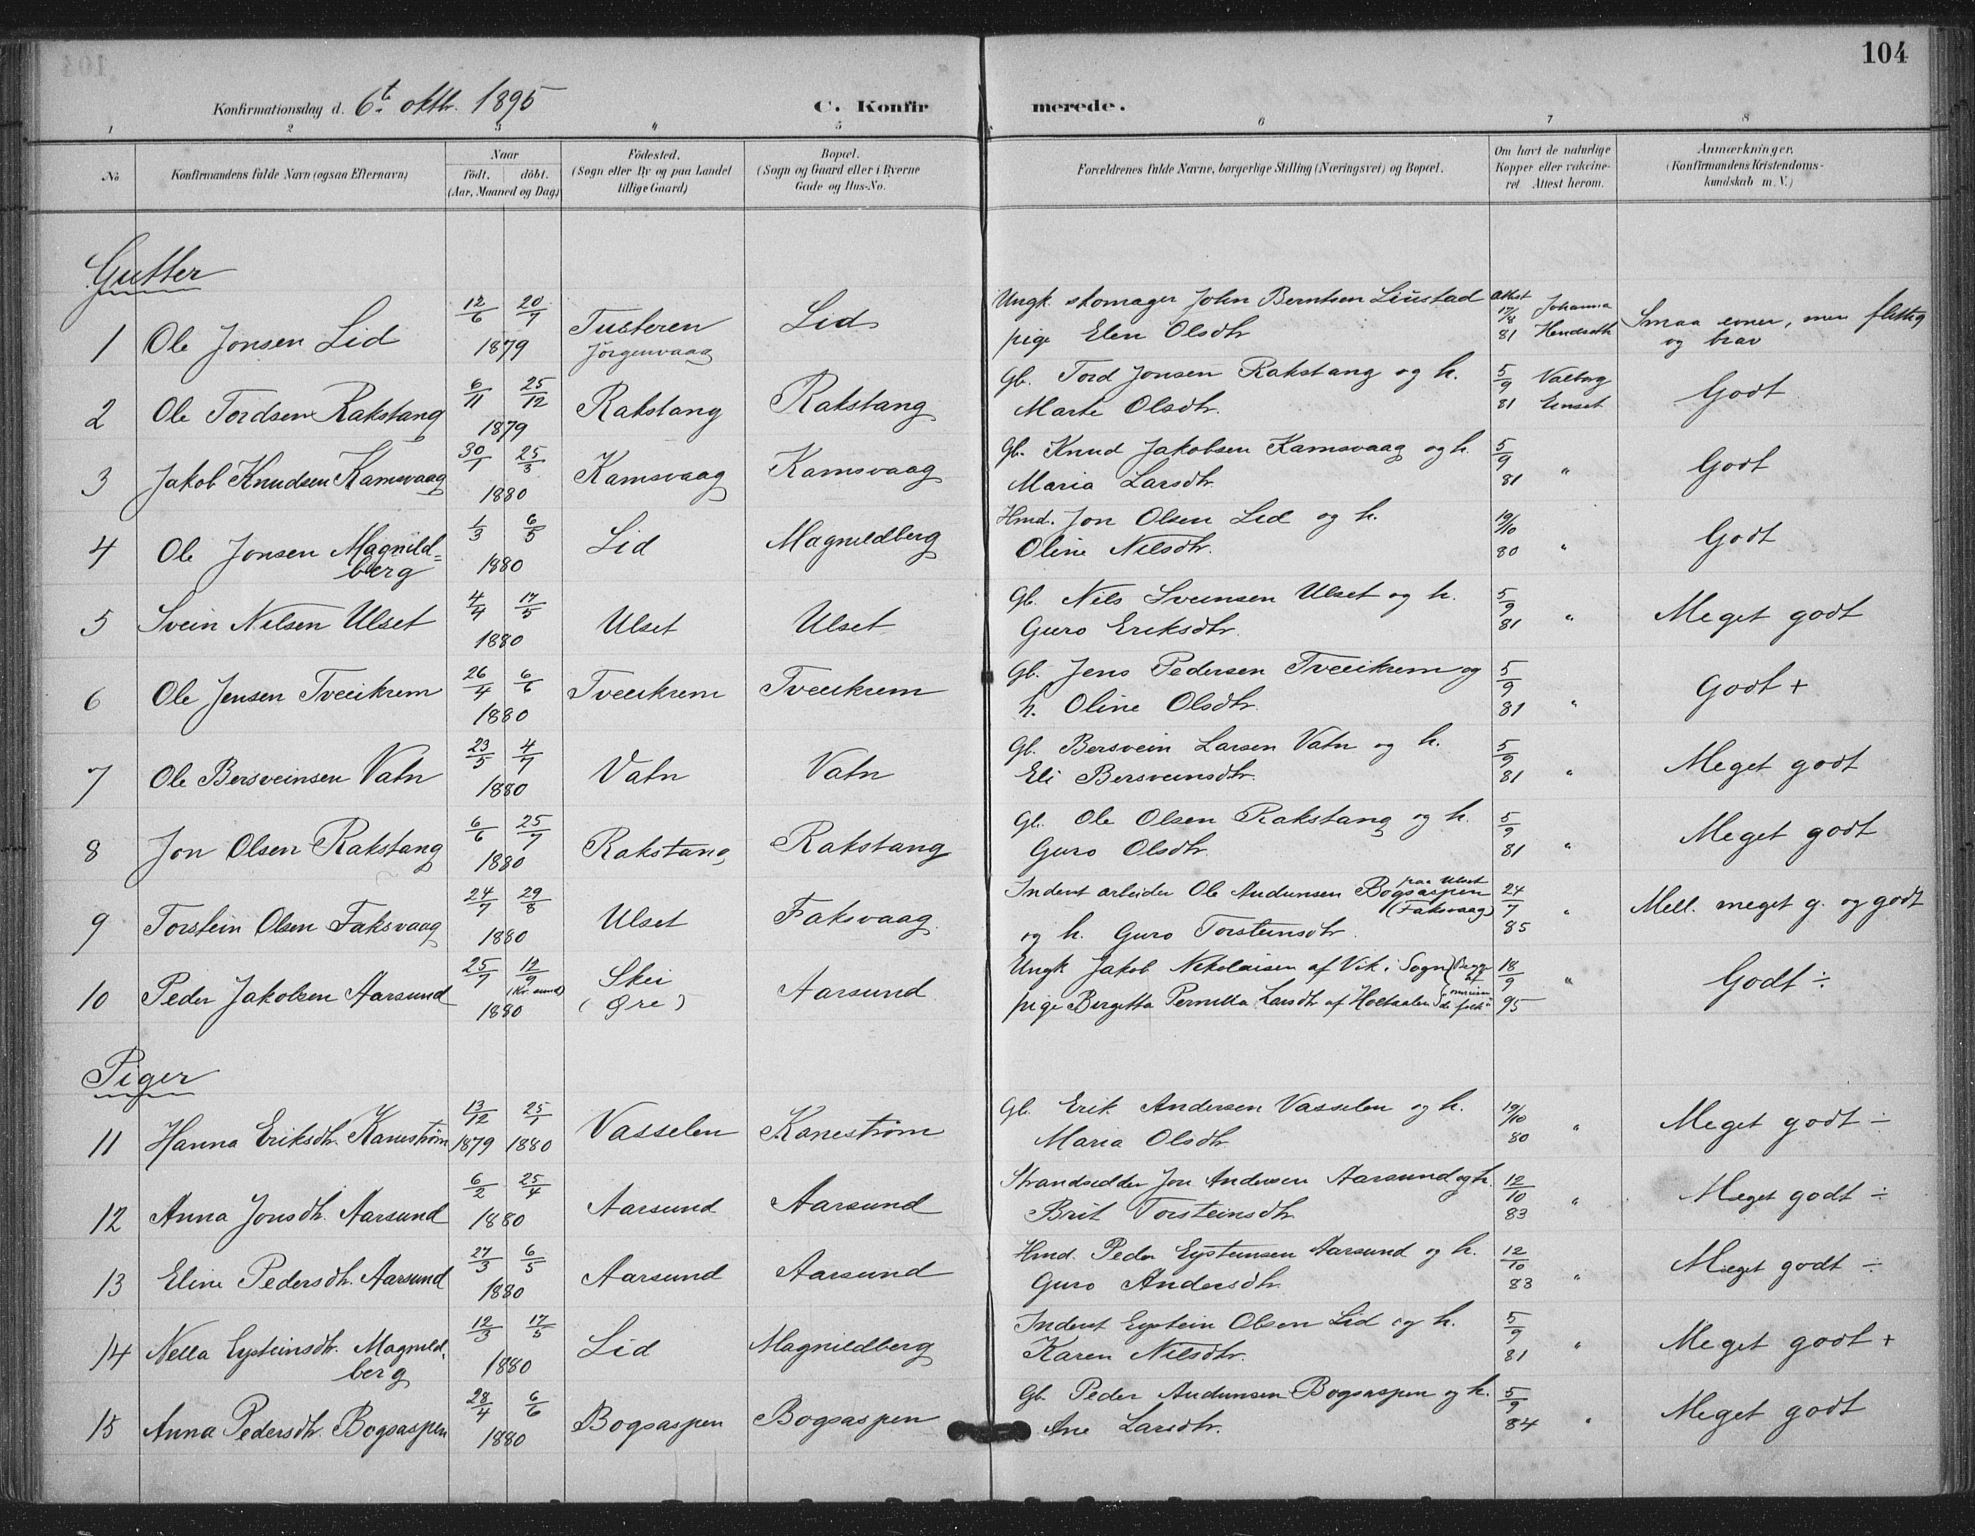 104
Konfirmationsdag d. 6te oktbr. 1895 C. Konfirmerede.
1 2 3 4 5 6 7 8
No Konfirmandens fulde Navn (ogsaa Efternavn) Naar födt. döbt. (Aar, Maaned og Dag) Födested. (Sogn eller By og paa Landet tillige Gaard) Bopæl. (Sogn og Gaard eller i Byerne Gade og Hus-No. Forældrenes fulde Navne, borgerlige Stilling (Næringsvei) og Bopæl. Om havt de naturlige Kopper eller vakcineret. Attest herom. Anmærkninger. (Konfirmandens Kristendomskundskab m. V.)
Gutter
1 Ole Jonsen Lid 12/6 20/7 1879 Tusteren Jørgenvaag Lid Ungk. skomager John Berntsen Liustad pige Elen Olsdtr. Attest 17/8 81 Johanna Smaa evner, men flittig og brav
2 Ole Tordsen Rakstang 6/11 25/12 1879 Rakstang Rakstang Gb. Tord Jonsen Rakstang og h. Marte Olsdtr. 5/9 81 Valborg Einset Godt
3 Jakob Knudsen Kamsvaag 30/1 25/3 1880 Kamsvaag Kamsvaag Gb. Knud Jakobsen Kamsvaag og h. Maria Larsdtr. 5/9 81 " Godt
4 Ole Jonsen Magnildberg 1/3 6/5 1880 Lid Magnildberg Hmd. Jon Olsen Lid og h. Oline Nilsdtr. 19/10 80 " Godt
5 Svein Nilsen Ulset 4/4 17/5 1880 Ulset Ulset Gb. Nils Sveinsen Ulset og h. Guro Eriksdtr. 5/9 81 " Meget godt
6 Ole Jensen Tveeikrem 26/4 6/6 1880 Tveeikrem Tveeikrem Gb. Jens Pedersen Tveeikrem og h. Oline Olsdtr. 5/9 81 " Godt +
7 Ole Bersveinsen Vatn 23/5 4/7 1880 Vatn Vatn Gb. Bersvein Larsen Vatn og h. Eli Bersveinsdtr. 5/9 81 " Meget godt
8 Jon Olsen Rakstang 6/6 25/7 1880 Rakstang Rakstang Gb. Ole Olsen Rakstang og h. Guro Olsdtr. 5/9 81 " Meget godt
9 Torstein Olsen Faksvaag 24/7 29/8 1880 Ulset Faksvaag Inderst arbeider Ole Audunsen Bogsaspen paa Ulset (Faksvaag) og h. Guro Torsteinsdtr. 24/7 85 " Mell. meget g. og godt
10 Peder Jakobsen Aarsund 25/7 12/9 (Kr.sund) 1880 Skei (Øre) Aarsund Ungk. Jakob Nikolaisen af Vik i Sogn pige Birgitta Pernilla Larsdtr af Holtaalen 18/9 95 " Godt ÷
Piger
11 Hanna Eriksdtr. Kanestrøm 13/12 1879 25/1 1880 Vasselen Kanestrøm Gb. Erik Andersen Vasselen og h. Maria Olsdtr. 19/10 80 " Meget godt ÷
12 Anna Jonsdtr. Aarsund 6/2 25/4 1880 Aarsund Aarsund Strandsidder Jon Andersen Aarsund og h. Brit Torsteinsdtr. 12/10 83 " Meget godt ÷
13 Eline Pedersdtr. Aarsund 27/3 6/5 1880 Aarsund Aarsund Hmd. Peder Eysteinsen Aarsund og h. Guro Andersdtr. 12/10 83 " Meget godt ÷
14 Nella Eysteinsdtr. Magnildberg 12/3 17/5 1880 Lid Magnildberg Inderst Eystein Olsen Lid og h. Karen Nilsdtr. 5/9 81 " Meget godt +
15 Anna Pedersdtr. Bogsaspen 28/4 6/6 1880 Bogsaspen Bogsaspen Gb. Peder Audunsen Bogsaspen og h. Ane Larsdtr. 5/9 84 " Meget godt